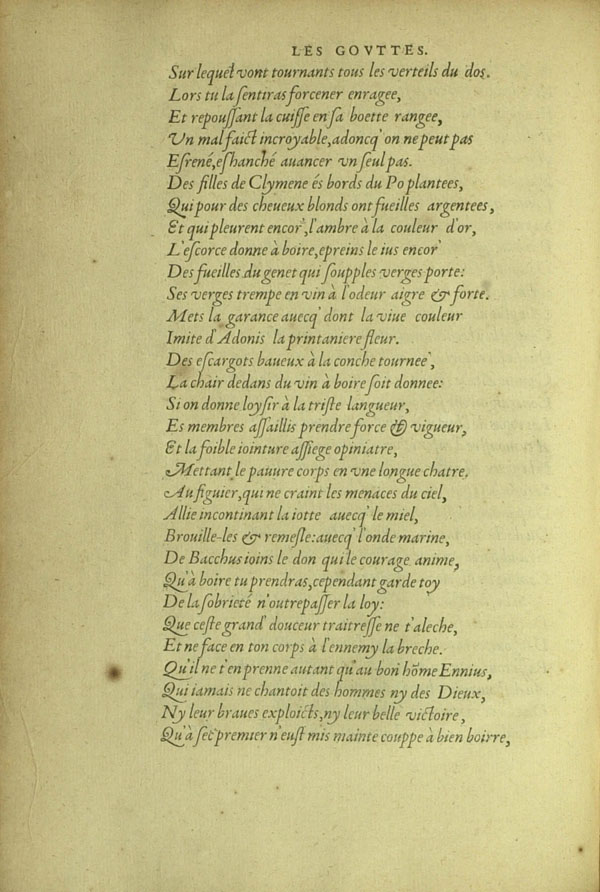 LES GOVTTES.
Sur lequel vont tournants tous les verteils du dos.
Lors tu la ſentiras forcener enragee,
Et repouſſant la cuiſſe en ſa boette rangee,
Vn mal faict incroyable, adoncq' on ne peut pas
Eſrené, eſhanché auancer vn ſeul pas.
Des filles de Clymene és bords du Po plantees,
Qui pour des cheueux blonds ont fueilles argentees,
Et qui pleurent encor', l'ambre à la couleur d'or,
L'eſcorce donne à boire, epreins le ius encor'
Des fueilles du genet qui ſoupples verges porte:
Ses verges trempe en vin à l'odeur aigre & forte.
Mets la garance auecq' dont la viue couleur
Imite d'Adonis la printaniere fleur.
Des eſcargots baueux à la conche tournee',
La chair dedans du vin à boire ſoit donnee:
Si on donne loyſir à la triſte langueur,
Es membres aſſaillis prendre force & vigueur,
Et la foible iointure aſſiege opiniatre,
Mettant le pauure corps en vne longue chatre.
Au figuier, qui ne craint les menaces du ciel,
Allie incontinant la iotte auecq' le miel,
Brouille-les & remeſle: auecq' l'onde marine,
De Bacchus ioins le don qui le courage anime,
Qu'à boire tu prendras, cependant garde toy
De la ſobrieté n'outrepaſſer la loy:
Que ceſte grand' douceur traitreſſe ne t'aleche,
Et ne face en ton corps à l'ennemy la breche.
Qu'il ne t'en prenne autant qu'au bon hõme Ennius,
Qui iamais ne chantoit des hommes ny des Dieux,
Ny leur braues exploicts, ny leur belle victoire,
Qu'à ſec premier n'euſt mis mainte couppe à bien boirre,